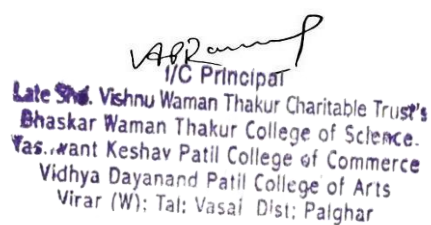 I/C Principal
Late Shri. Vishnu Waman Thakur Charitable Trust's
Bhaskar Waman Thakur College of Science.
Keshav Patil College of Commerce
Vidhya Dayanand Patil College of Arts
Virar (W); Tal; Vasai Dist; Palghar